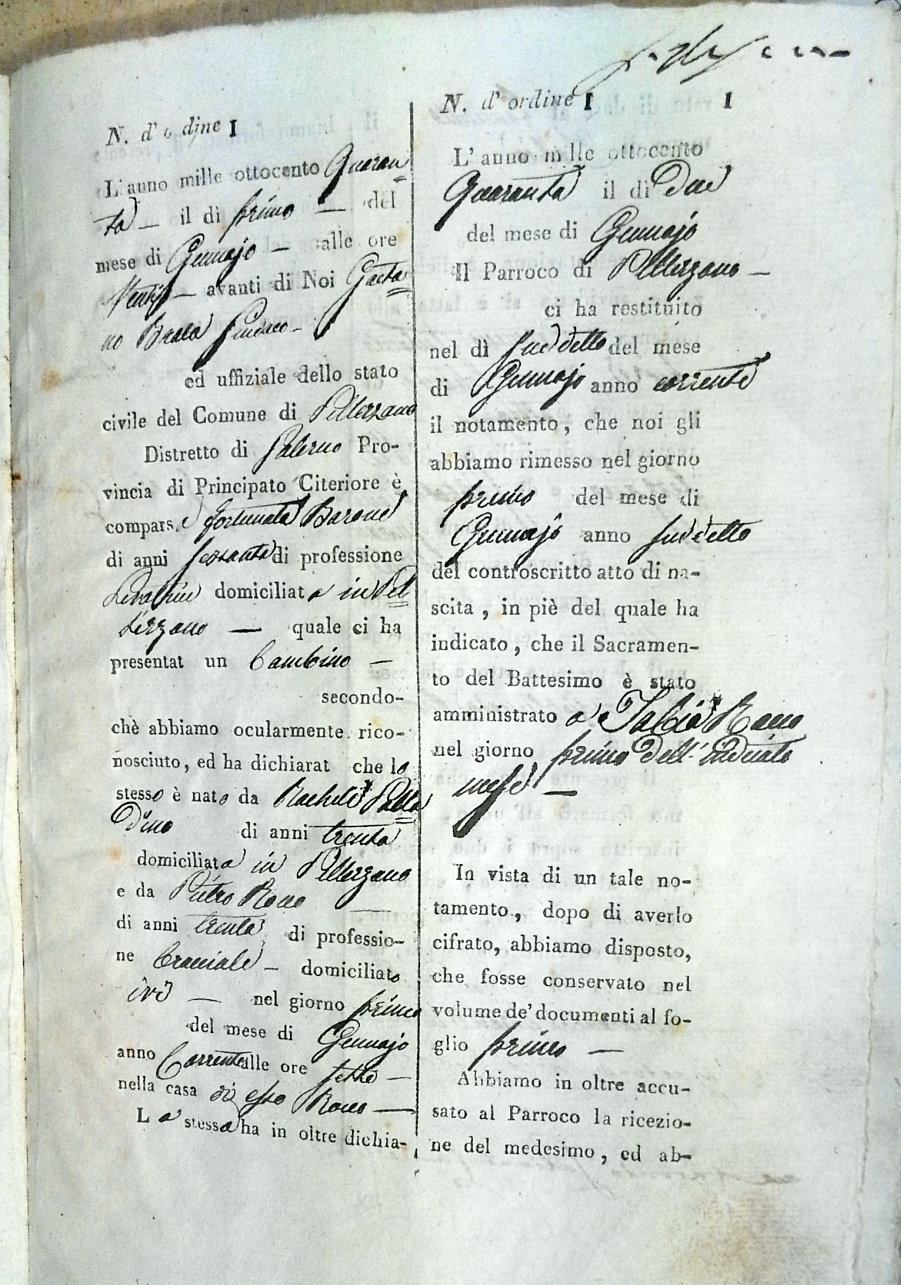 N. d'ordine I
L'anno mille ottocento Quaran
ta — il dì primo — del
mese di Gennajo — alle ore
— avanti di Noi Gaeta
no Sindaco —
ed uffiziale dello stato
civile del Comune di Pellezzano
Distretto di Salerno Pro-
vincia di Principato Citeriore è
compars e Fortunata Barone
di anni sessanta di professione
Levatrice domiciliat a in Pel
lezzano — quale ci ha
presentat un bambino —
secondo-
chè abbiamo ocularmente rico-
nosciuto, ed ha dichiarat che lo
stesso è nato da Rachele Palla
dino di anni trenta
domiciliata in Pellezzano
e da Pietro
di anni trenta di professio-
ne bracciale — domiciliato
ivi — nel giorno primo
del mese di Gennajo
anno Corrente alle ore sette —
nella casa di esso —
La stessa ha in oltre dichia-
N. d'ordine I I
L'anno mille ottocento
Quaranta il dì Due
del mese di Gennajo
Il Parroco di Pellezzano —
ci ha restituito
nel dì suddetto del mese
di Gennajo anno corrente
il notamento, che noi gli
abbiamo rimesso nel giorno
primo del mese di
Gennajo anno suddetto
del controscritto atto di na-
scita, in piè del quale ha
indicato, che il Sacramen-
to del Battesimo è stato
amministrato a
nel giorno primo dell'indicato
mese —
In vista di un tale no-
tamento, dopo di averlo
cifrato, abbiamo disposto,
che fosse conservato nel
volume de' documenti al fo-
glio primo —
Abbiamo in oltre accu-
sato al Parroco la ricezio-
ne del medesimo, ed ab-